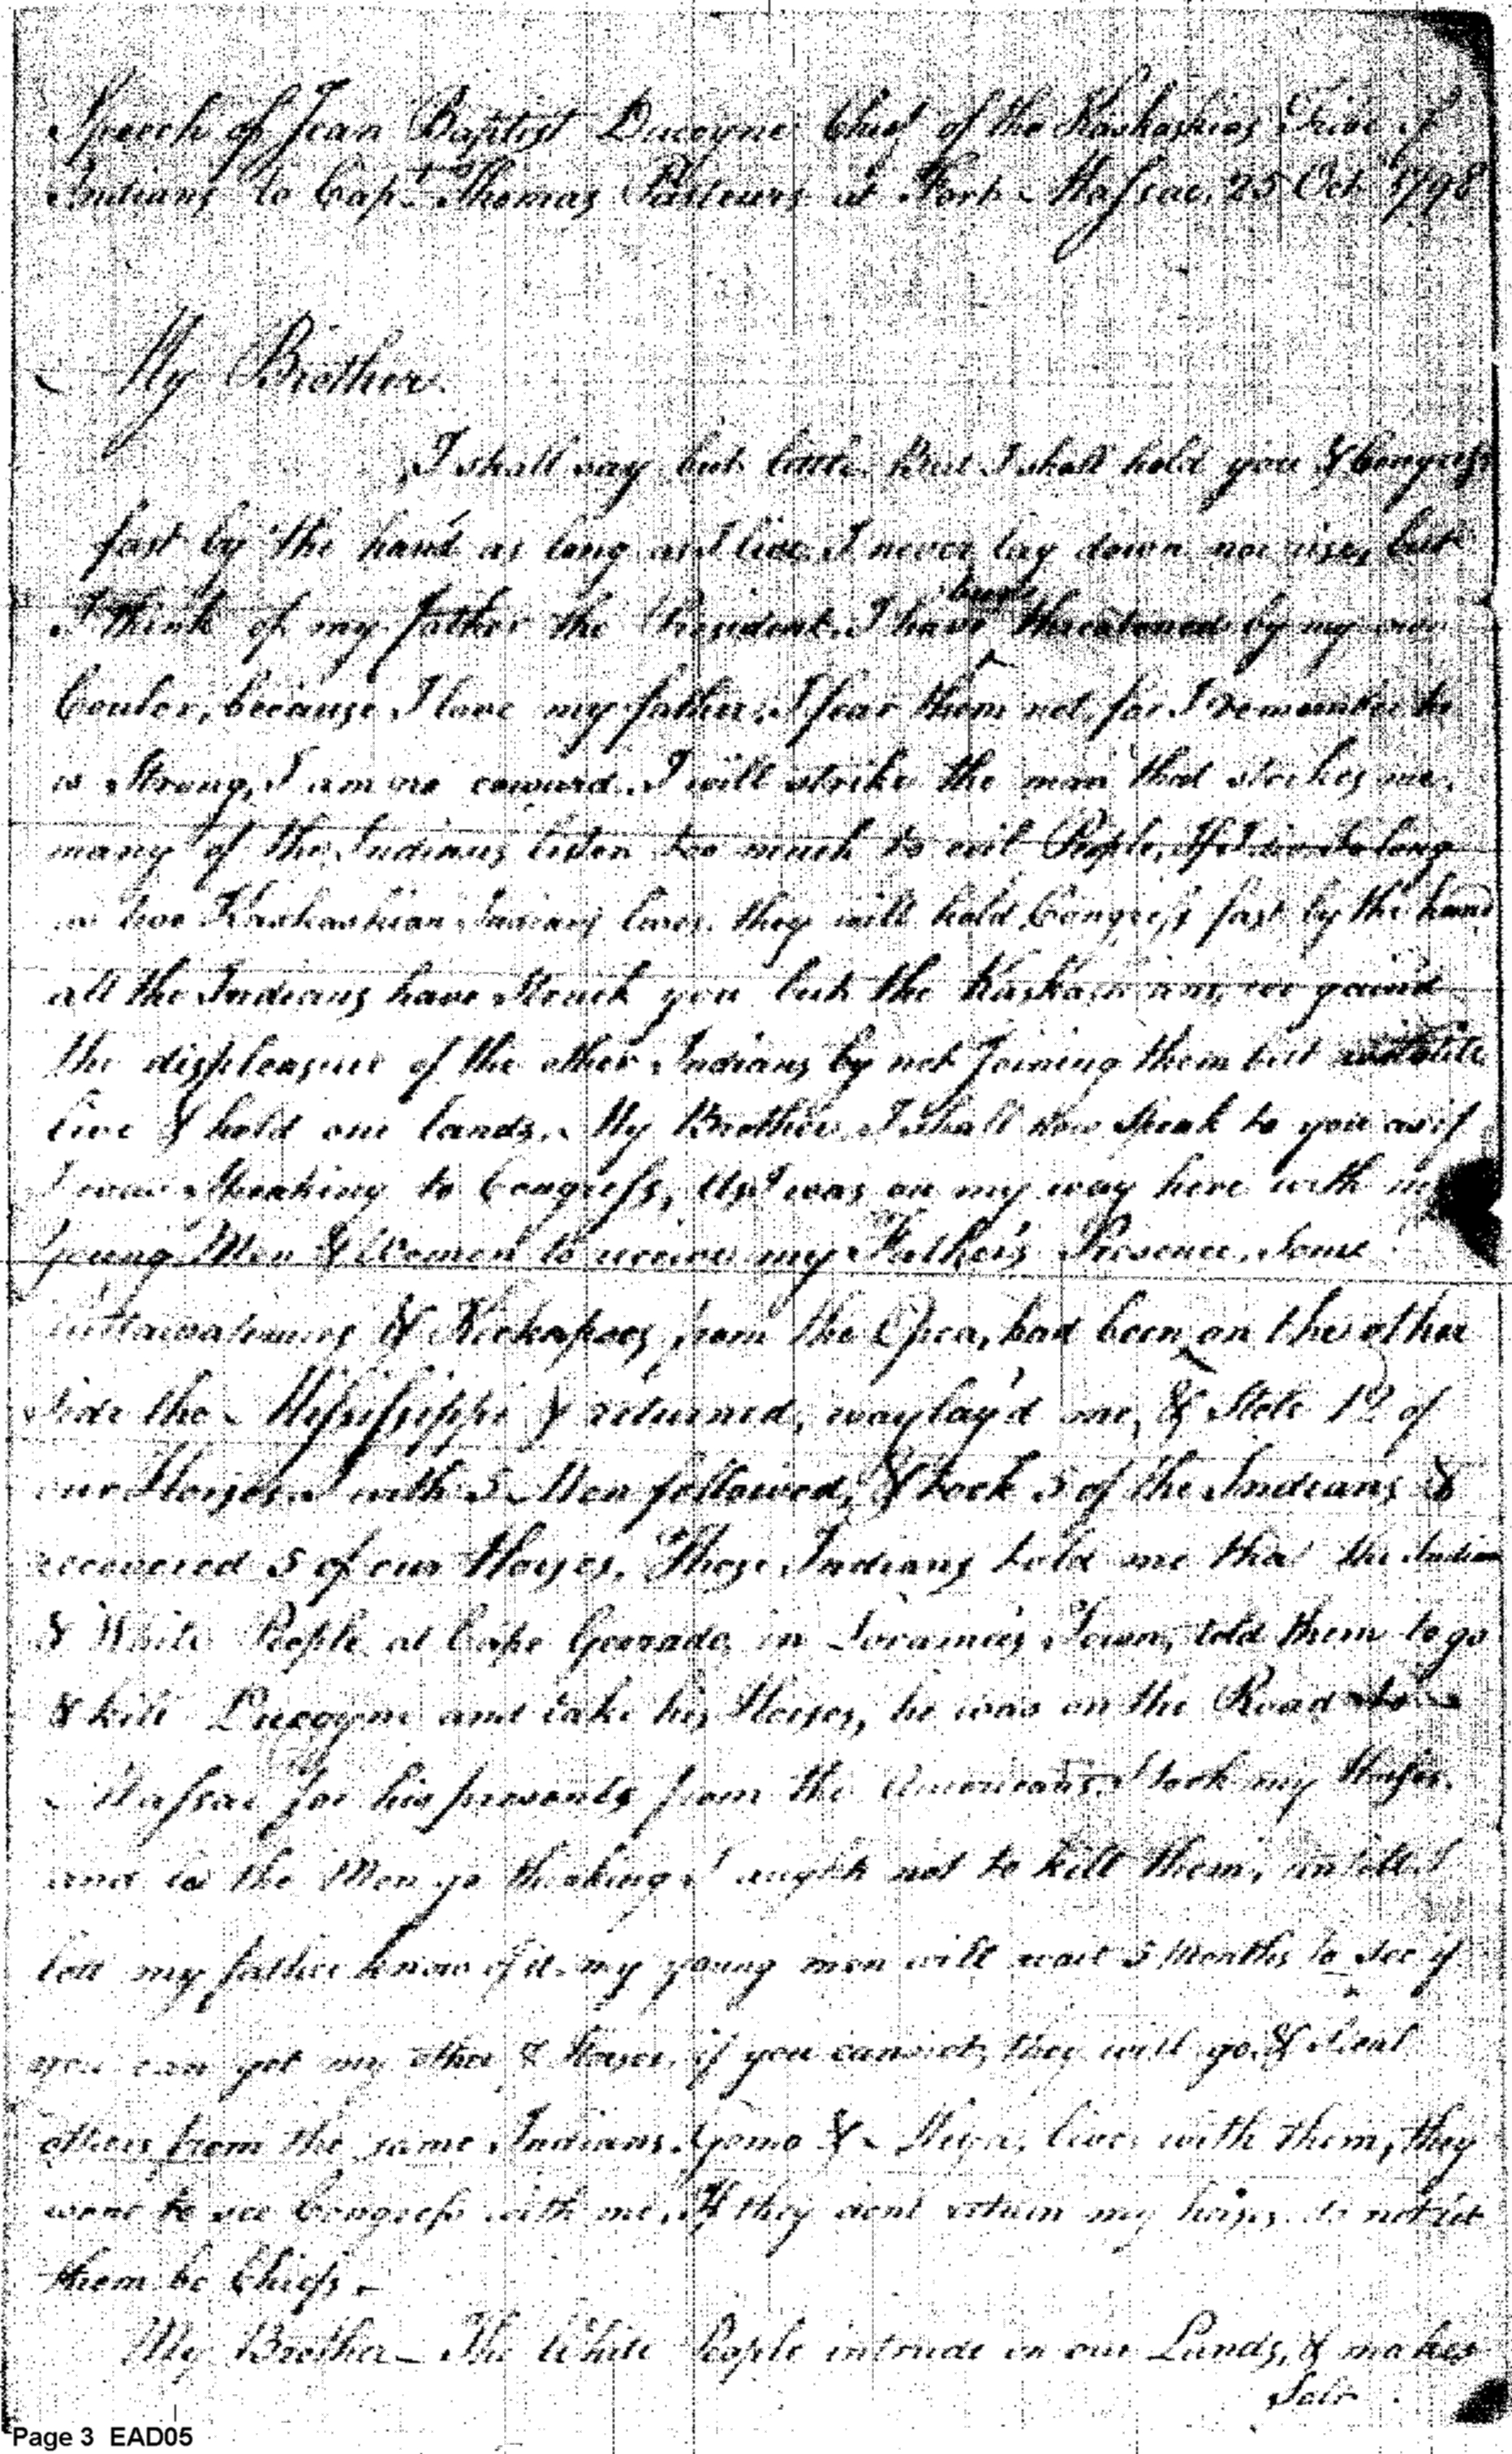 Speech of Jean Baptist Ducoyne Chief of the Kaskaskias Tribe of
Indians to Capt. Thomas Pasteurs at Fort Massac, 25 Oct 1798
My Brother.
I shall say but little. But I shall hold you & Congress
fast by the hand as long as I live. I never lay down nor rise, but
I think of my father the President. I have been threatened by my own
Couler, because I love my father. I fear them not, for I remember he
is Strong, I am no coward. I will strike the man that strikes me.
many of the Indians listen too much to evil People, If I die So long
as two Kaskaskian Indians lives. they will hold Congress fast by the hand
all the Indians have Struck you but the Kaskaskians, we gained
the displeasure of the other Indians by not Joining them but
live & hold our lands. My Brother I shall now Speak to you as if
I was Speaking to Congress, As I was on my way here with my
Young Men & Women to receive my Father's Presence, Some
& Kickapoos from the Opea, had been on the other
Side the Mississippi & returned, waylay'd me, & Stole of
our Horses. I with 5 Men followed, & took 5 of the Indians &
recovered 5 of our Horses. These Indians told me that the Indian
& White People at Cape Gerrado, in Loramies Town, told them to go
& kill Ducoyne and take his Horses, he was on the Road to
Massac for his presents from the Americans. I took my Horses.
and let the Men go thinking I aught not to kill them, untill I
let my father know of it. my young men will wait 5 Months to See if
you can get my other Horses, if you cannot, they will go & Steal
others from the same Indians. Gomo & lives with them, they
went to see Congress with me. If they dont return my horses do not let
them be Chiefs.
My Brother - The White People intrude in our Lands, & makes
Salt
Page 3 EAD05